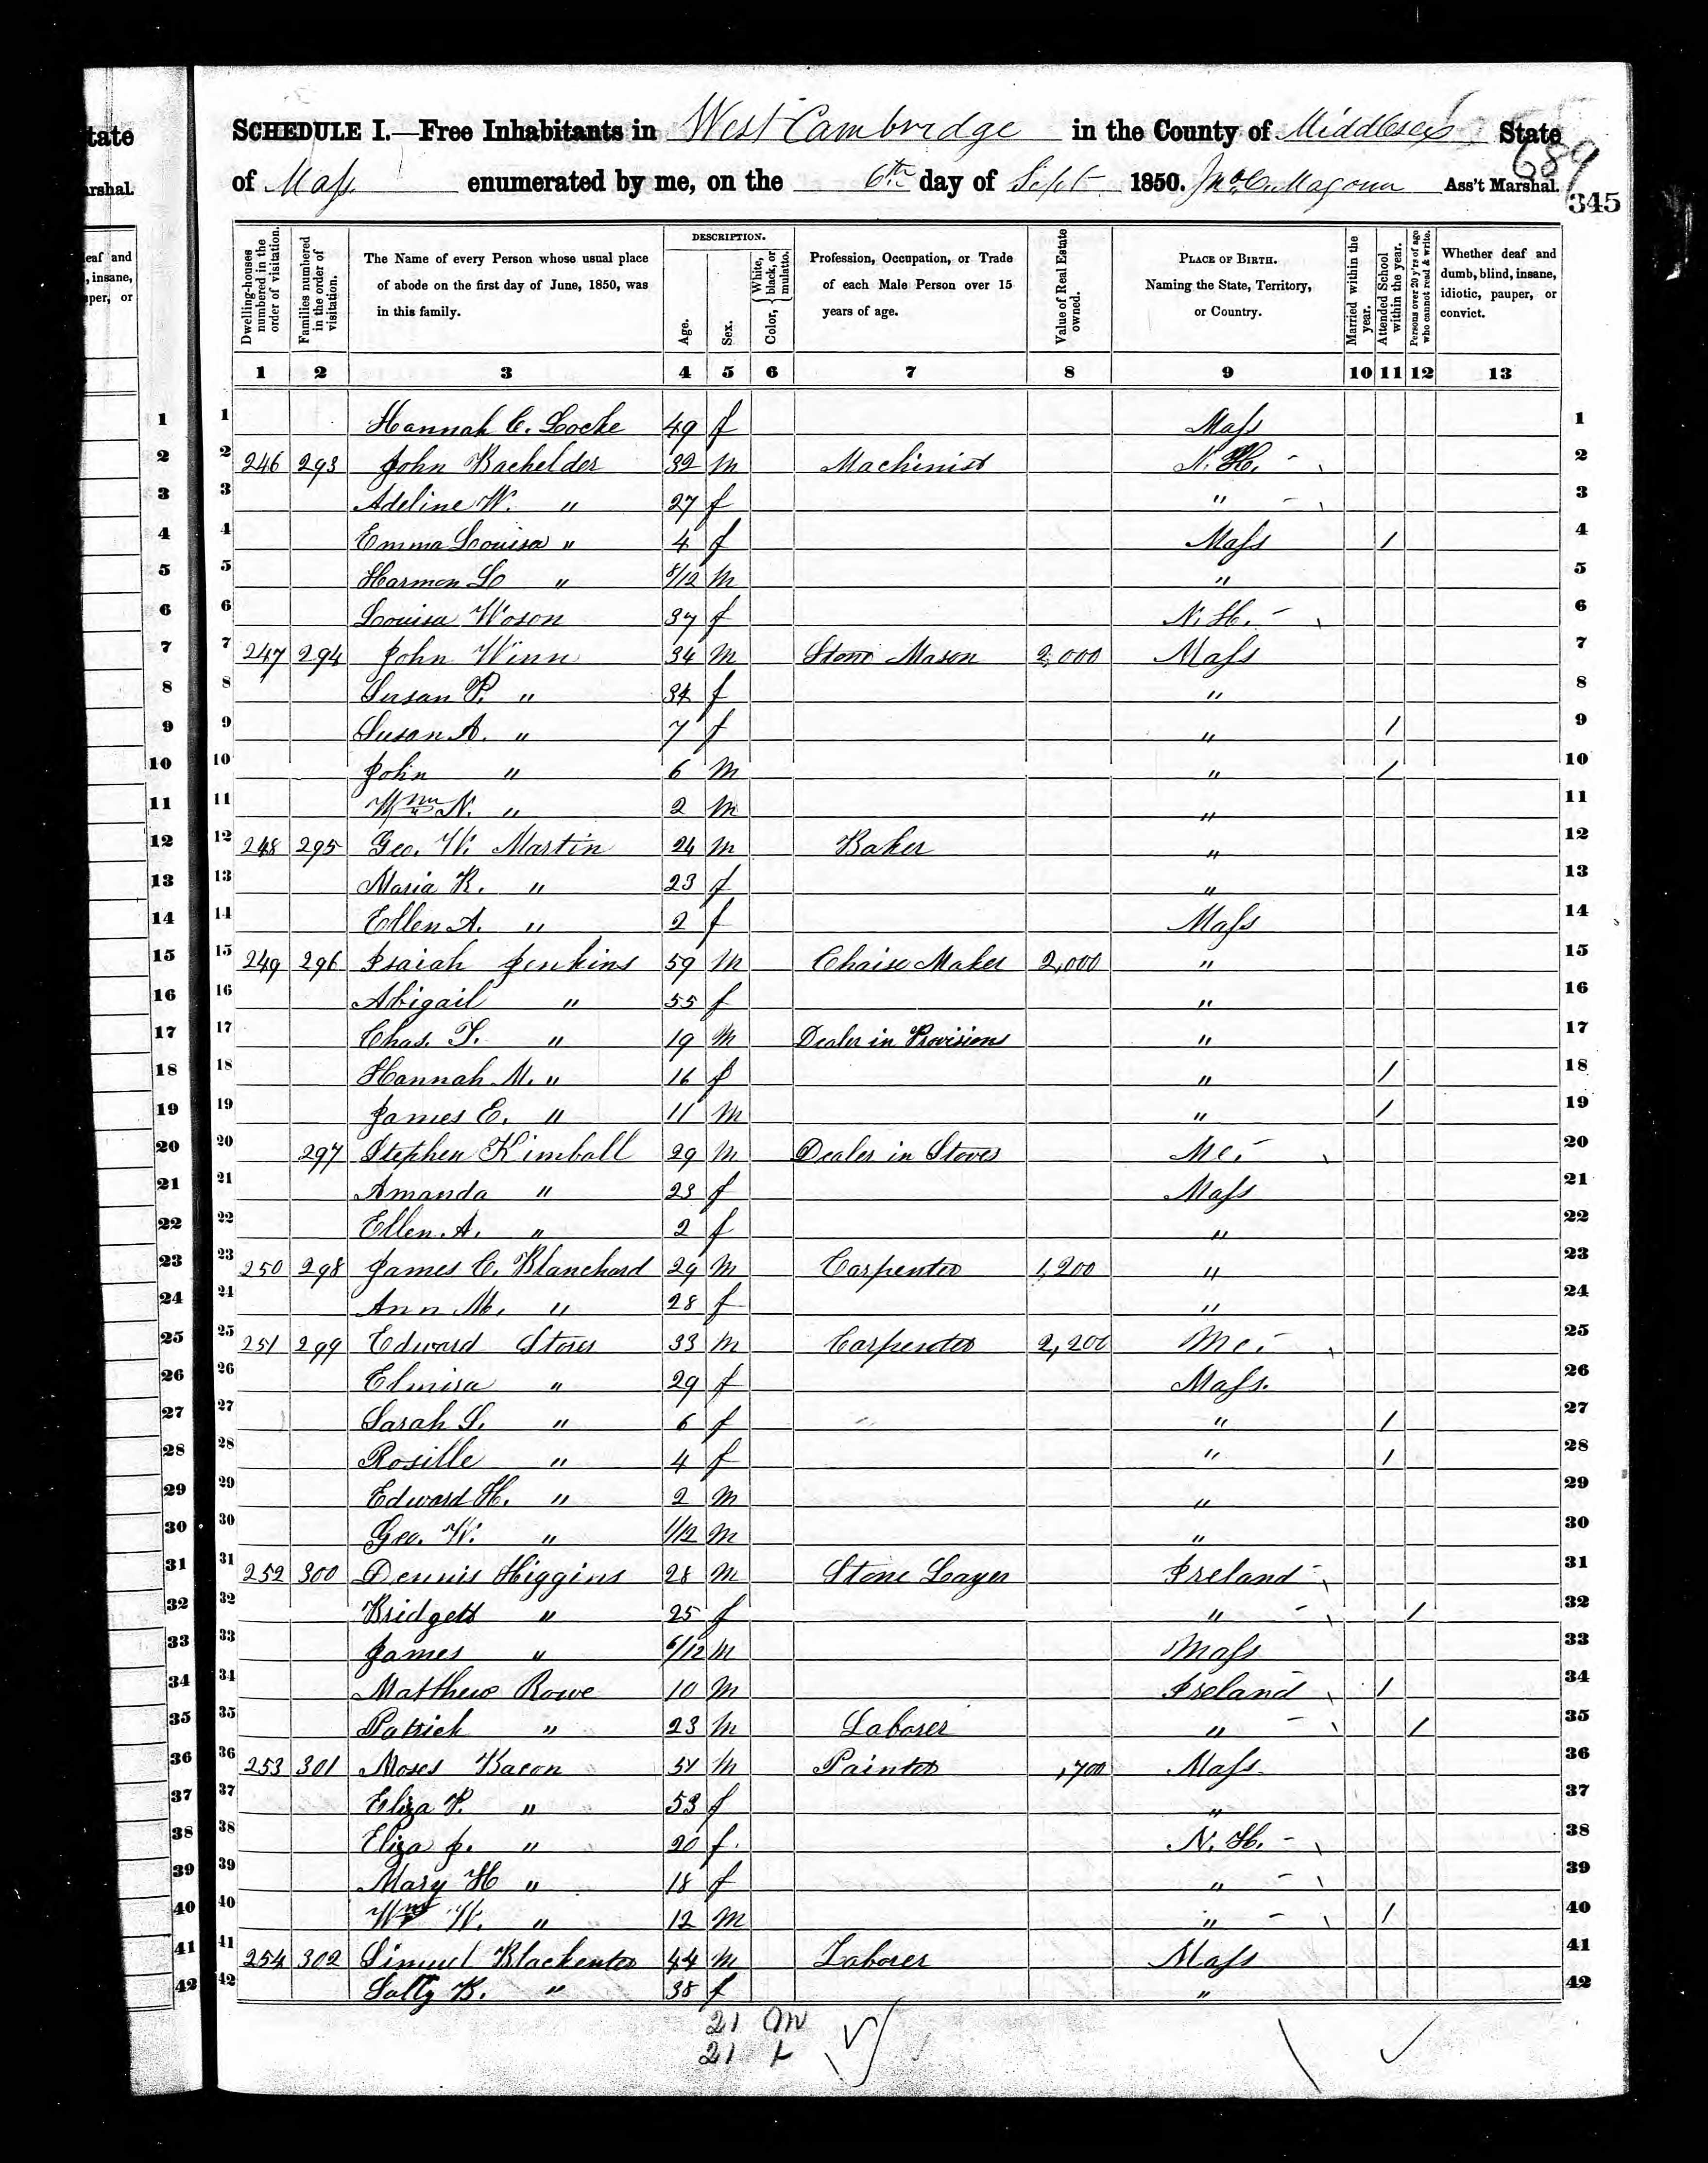 SCHEDULE I.—Free Inhabitants in West Cambridge in the County of Middlesex State
689
of Mass enumerated by me, on the 6th day of Sept 1850. Jno. C. Magoun Ass't Marshal.
345
tate
arshal.
eaf and
, insane,
uper, or
Dwelling-houses numbered in the order of visitation.
Families numbered in the order of visitation.
The Name of every Person whose usual place of abode on the first day of June, 1850, was in this family.
DESCRIPTION.
Age.
Sex.
Color, { White, black, or mulatto.
Profession, Occupation, or Trade of each Male Person over 15 years of age.
Value of Real Estate owned.
PLACE OF BIRTH. Naming the State, Territory, or Country.
Married within the year.
Attended School within the year.
Persons over 20 y'rs of age who cannot read & write.
Whether deaf and dumb, blind, insane, idiotic, pauper, or convict.
1 2 3 4 5 6 7 8 9 10 11 12 13
1 Hannah C. Locke 49 f Mass 1
2 246 293 John Bachelder 32 M Machinist N. H. 2
3 Adeline W. " 27 f " 3
4 Emma Louisa " 4 f Mass / 4
5 Harmon L " 8/12 M " 5
6 Louisa Woson 37 f N. H. 6
7 247 294 John Winn 34 M Stone Mason 2,000 Mass 7
8 Susan P. " 34 f " 8
9 Susan A. " 7 f " / 9
10 John " 6 M " / 10
11 Wm N. " 2 M " 11
12 248 295 Geo. W. Martin 24 M Baker " 12
13 Maria R. " 23 f " 13
14 Ellen A. " 2 f Mass 14
15 249 296 Isaiah Jenkins 59 M Chaise Maker 2,000 " 15
16 Abigail " 55 f " 16
17 Chas. T. " 19 M Dealer in Provisions " 17
18 Hannah M. " 16 f " / 18
19 James E. " 11 M " / 19
20 297 Stephen Kimball 29 M Dealer in Stoves Me. 20
21 Amanda " 23 f Mass 21
22 Ellen. A. " 2 f " 22
23 250 298 James C. Blanchard 29 M Carpenter 1,200 " 23
24 Ann M. " 28 f " 24
25 251 299 Edward Storer 33 M Carpenter 2,200 Me. 25
26 Elmira " 29 f Mass. 26
27 Sarah S. " 6 f " / 27
28 Rosille " 4 f " / 28
29 Edward H. " 2 M " 29
30 Geo. W. " 1/12 M " 30
31 252 300 Dennis Higgins 28 M Stone Layer Ireland 31
32 Bridgett " 25 f " / 32
33 James " 6/12 M Mass 33
34 Matthew Rowe 10 M Ireland / 34
35 Patrick " 23 M Laborer " / 35
36 253 301 Moses Bacon 51 M Painter ,700 Mass 36
37 Eliza P. " 53 f " 37
38 Eliza J. " 20 f N. H. 38
39 Mary H " 18 f " 39
40 Wm W. " 12 M " / 40
41 254 302 Simuel Blackenter 44 M Laborer Mass 41
42 Sally B. " 38 f " 42
21 M
21 f